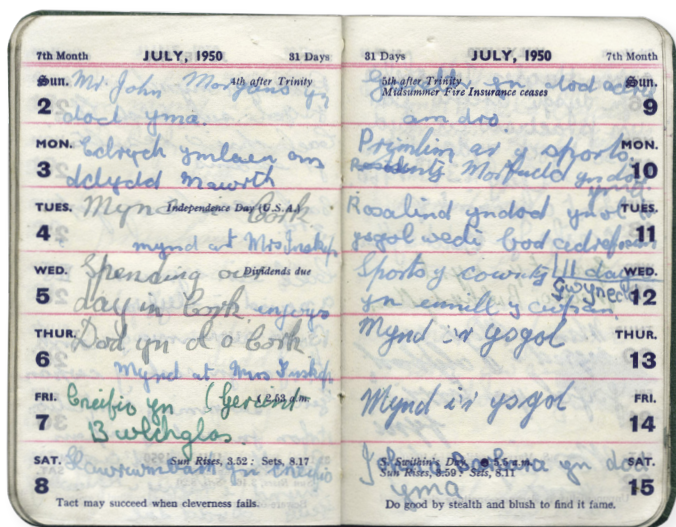 7th Month JULY, 1950 31 Days
Sun. 4th after Trinity
2
Mr John Morgans yn
dod yma.
MON.
3
Edrych ymlaen am
ddydd mawrth
TUES. Independence Day (U.S.A.)
4
Mynd Cork
mynd at Mrs
WED. Dividends due
5
Spending our
day in Cork enjoys
THUR.
6
Dod yn ol o Cork
Mynd at Mrs
FRI.
7
Cneifio yn (Gerient
Bwlchglas.
SAT. Sun Rises, 3.52: Sets, 8.17
8
yn cneifio
Tact may succeed when cleverness fails.
31 Days JULY, 1950 7th Month
5th after Trinity Sun.
Midsummer Fire Insurance ceases
9
yn dod
am dro.
MON.
10
ar y sports.
yndod
yma
TUES.
11
Rosalind yndod ynol
ysgol wedi bod
WED.
12
Sports y county 11 day
Gwynedd
yn ennill y cwpan.
THUR.
13
Mynd i'r ysgol
FRI.
14
Mynd i'r ysgol
SAT. S. Swithin's Day.
Sun Rises, 3.59: Sets, 8.11
15
yn dod
yma
Do good by stealth and blush to find it fame.